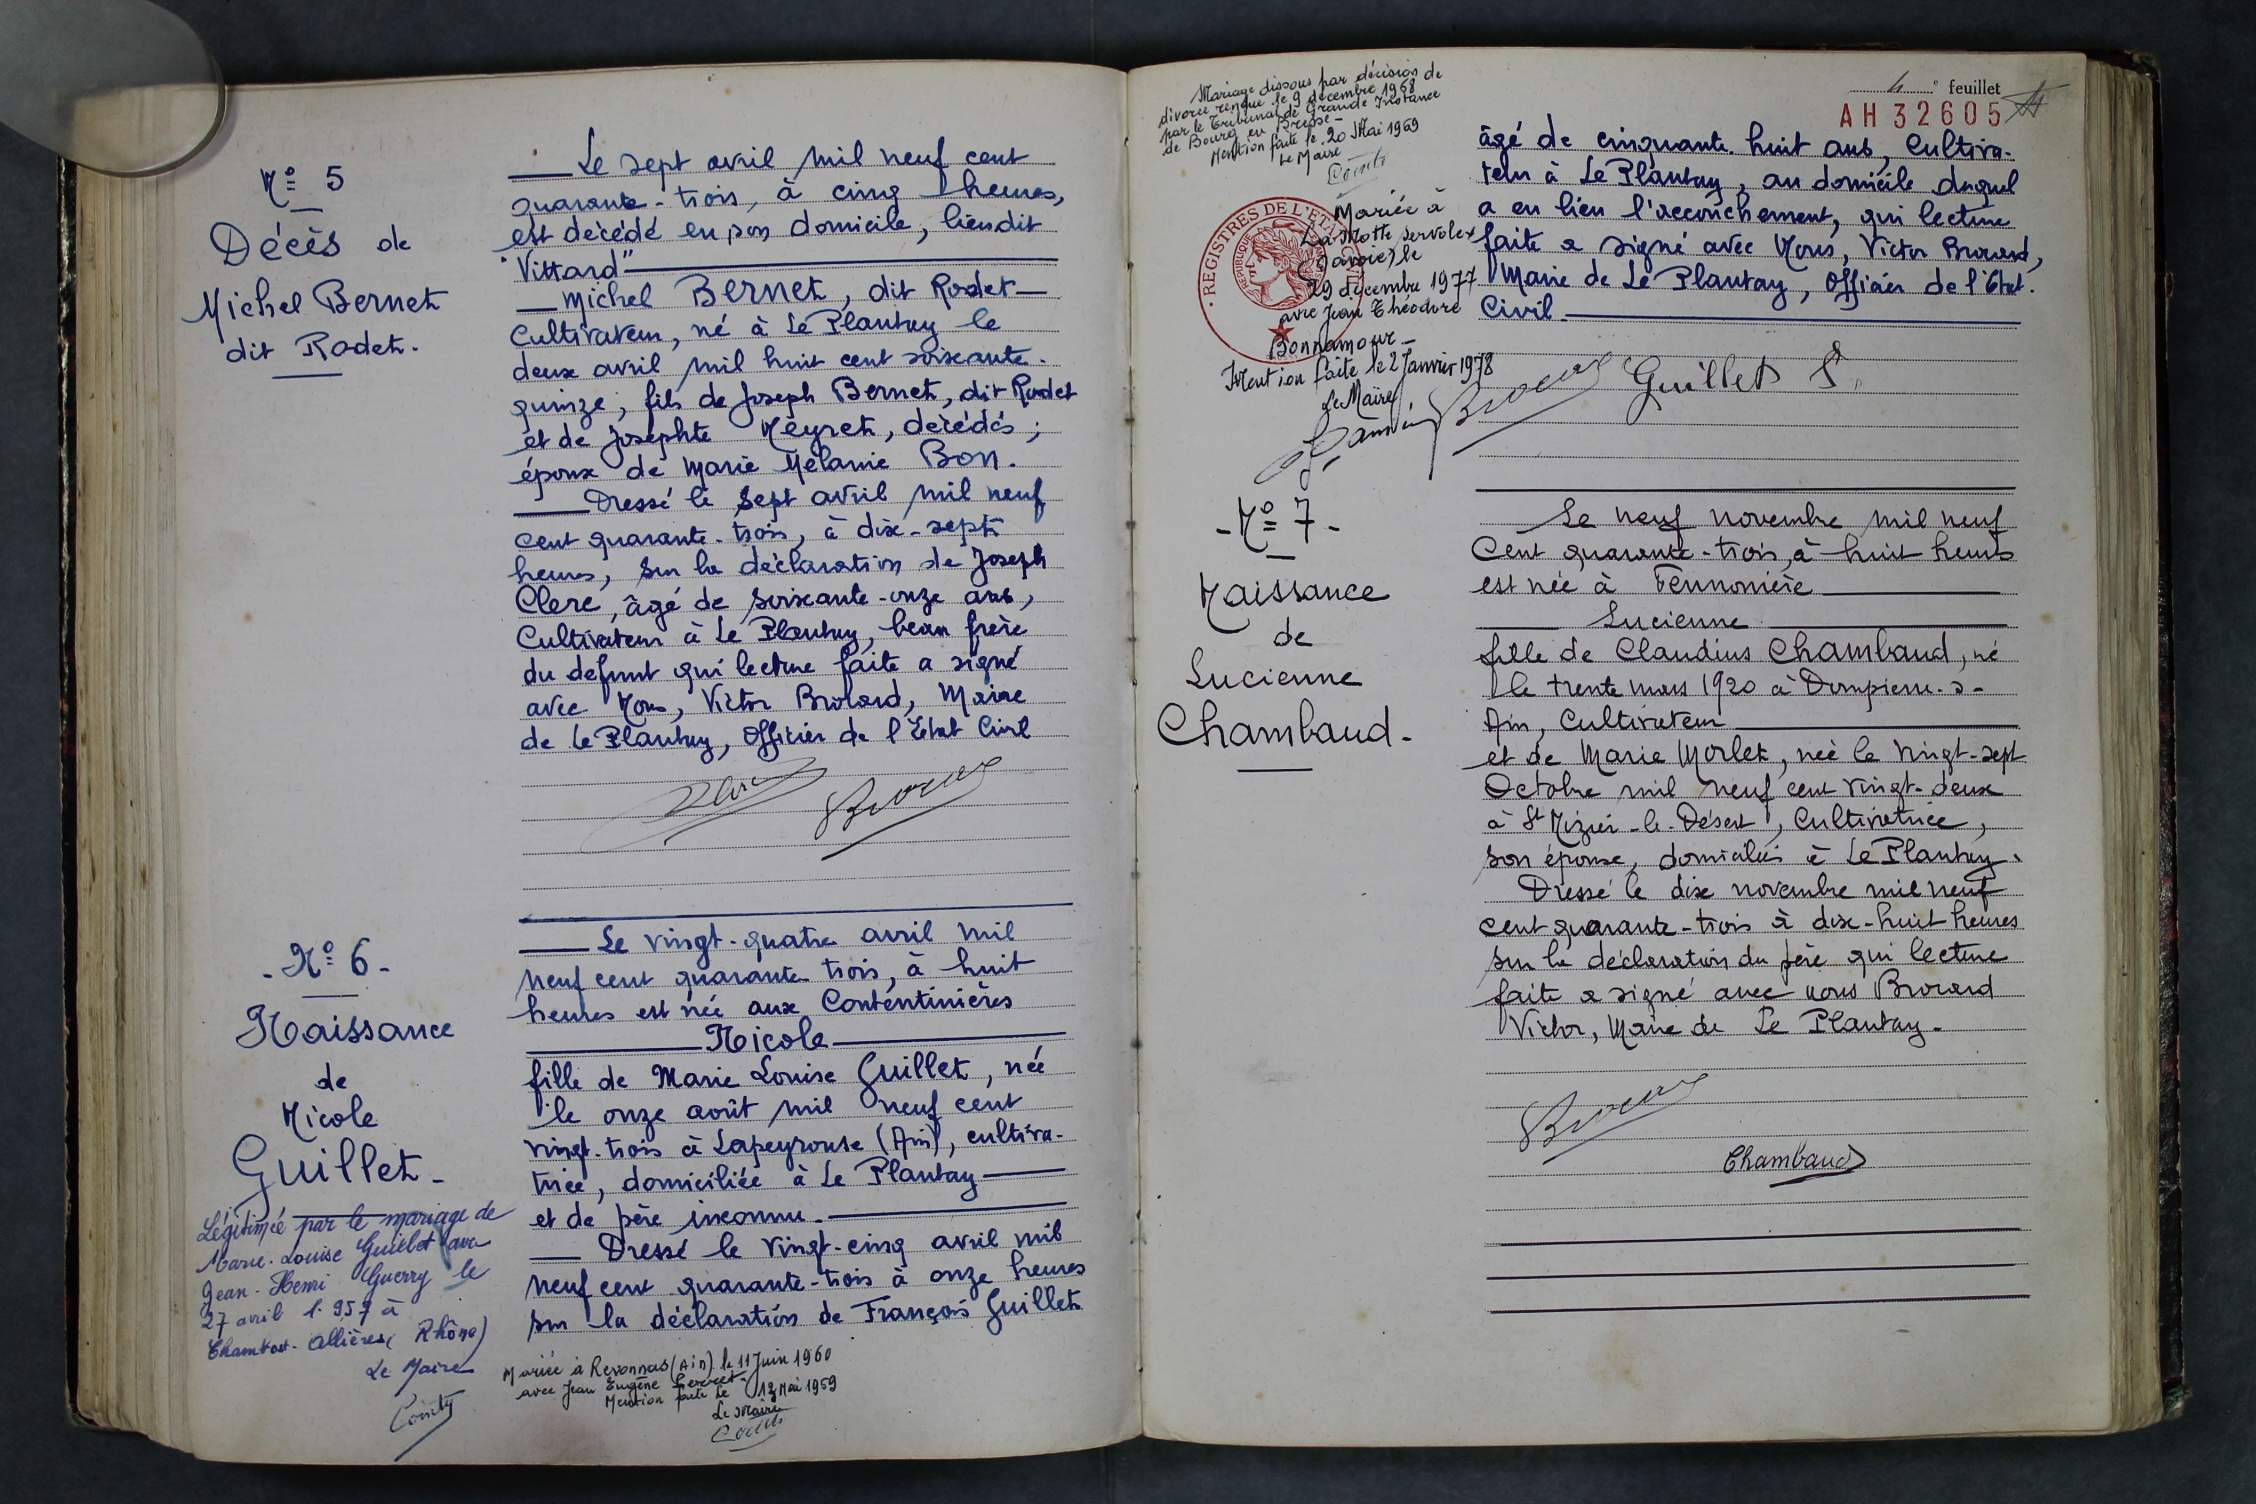 N° 5
Décès de
Michel Bernet
dit Rodet.
Le sept avril mil neuf cent
quarante-trois, à cinq heures,
est décédé en son domicile, lieudit
"Vittard"
Michel Bernet, dit Rodet
Cultivateur, né à Le Plantay le
deux avril mil huit cent soixante-
quinze, fils de Joseph Bernet, dit Rodet
et de Josephte Neyret, décédés ;
époux de Marie Mélanie Bon.
Dressé le sept avril mil neuf
cent quarante-trois, à dix-sept
heures, sur la déclaration de Joseph
Clerc, âgé de soixante-onze ans,
Cultivateur à Le Plantay, beau frère
du defunt qui lecture faite a signé
avec Nous, Victor Brovard, Maire
de Le Plantay, Officier de l'Etat Civil
- N° 6 -
Naissance
de
Nicole
Guillet -
Légitimée par le mariage de
Marie-Louise Guillet avec
Jean-Henri Guerry le
27 avril 1957 à
Chambost-Allières (Rhône)
Le Maire
Le vingt-quatre avril mil
neuf cent quarante trois, à huit
heures est née aux Contentinières
Nicole
fille de Marie Louise Guillet, née
le onze août mil neuf cent
vingt-trois à Lapeyrouse (Ain), cultiva-
trice, domiciliée à Le Plantay
et de père inconnu.
Dressé le vingt-cinq avril mil
neuf cent quarante-trois à onze heures
sur la déclaration de François Guillet
Mariée à Revonnas (Ain) le 11 Juin 1960
avec Jean Eugène Perret -
Mention faite le 12 Mai 1969
Le Maire
4e feuillet
AH 32605
Mariage dissous par décision de
divorce rendue le 9 décembre 1968
par le Tribunal de Grande Instance
de Bourg en Bresse -
Mention faite le 20 Mai 1969
Le Maire
REGISTRES DE L'ETAT
Mariée à
La Motte Servolex
(Savoie) le
29 décembre 1977
avec Jean Théodore
Bonnamour -
Mention faite le 2 Janvier 1978
Le Maire
âgé de cinquante-huit ans, Cultiva-
teur à Le Plantay, au domicile duquel
a eu lieu l'accouchement, qui lecture
faite a signé avec Nous, Victor Brovard,
Maire de Le Plantay, Officier de l'Etat.
Civil
Guillet F.
- N° 7 -
Naissance
de
Lucienne
Chambaud -
Le neuf novembre mil neuf
Cent quarante-trois, à huit heures
est née à Fennonière
Lucienne
fille de Claudius Chambaud, né
le trente mars 1920 à Dompierre-s-
Ain, Cultivateur
et de Marie Morlet, née le vingt-sept
Octobre mil neuf cent vingt-deux
à St Nizier-le-Désert, Cultivatrice,
son épouse, domiciliés à Le Plantay.
Dressé le dix novembre mil neuf
cent quarante-trois à dix-huit heures
sur la déclaration du père qui lecture
faite a signé avec nous Brovard
Victor, Maire de Le Plantay -
Chambaud